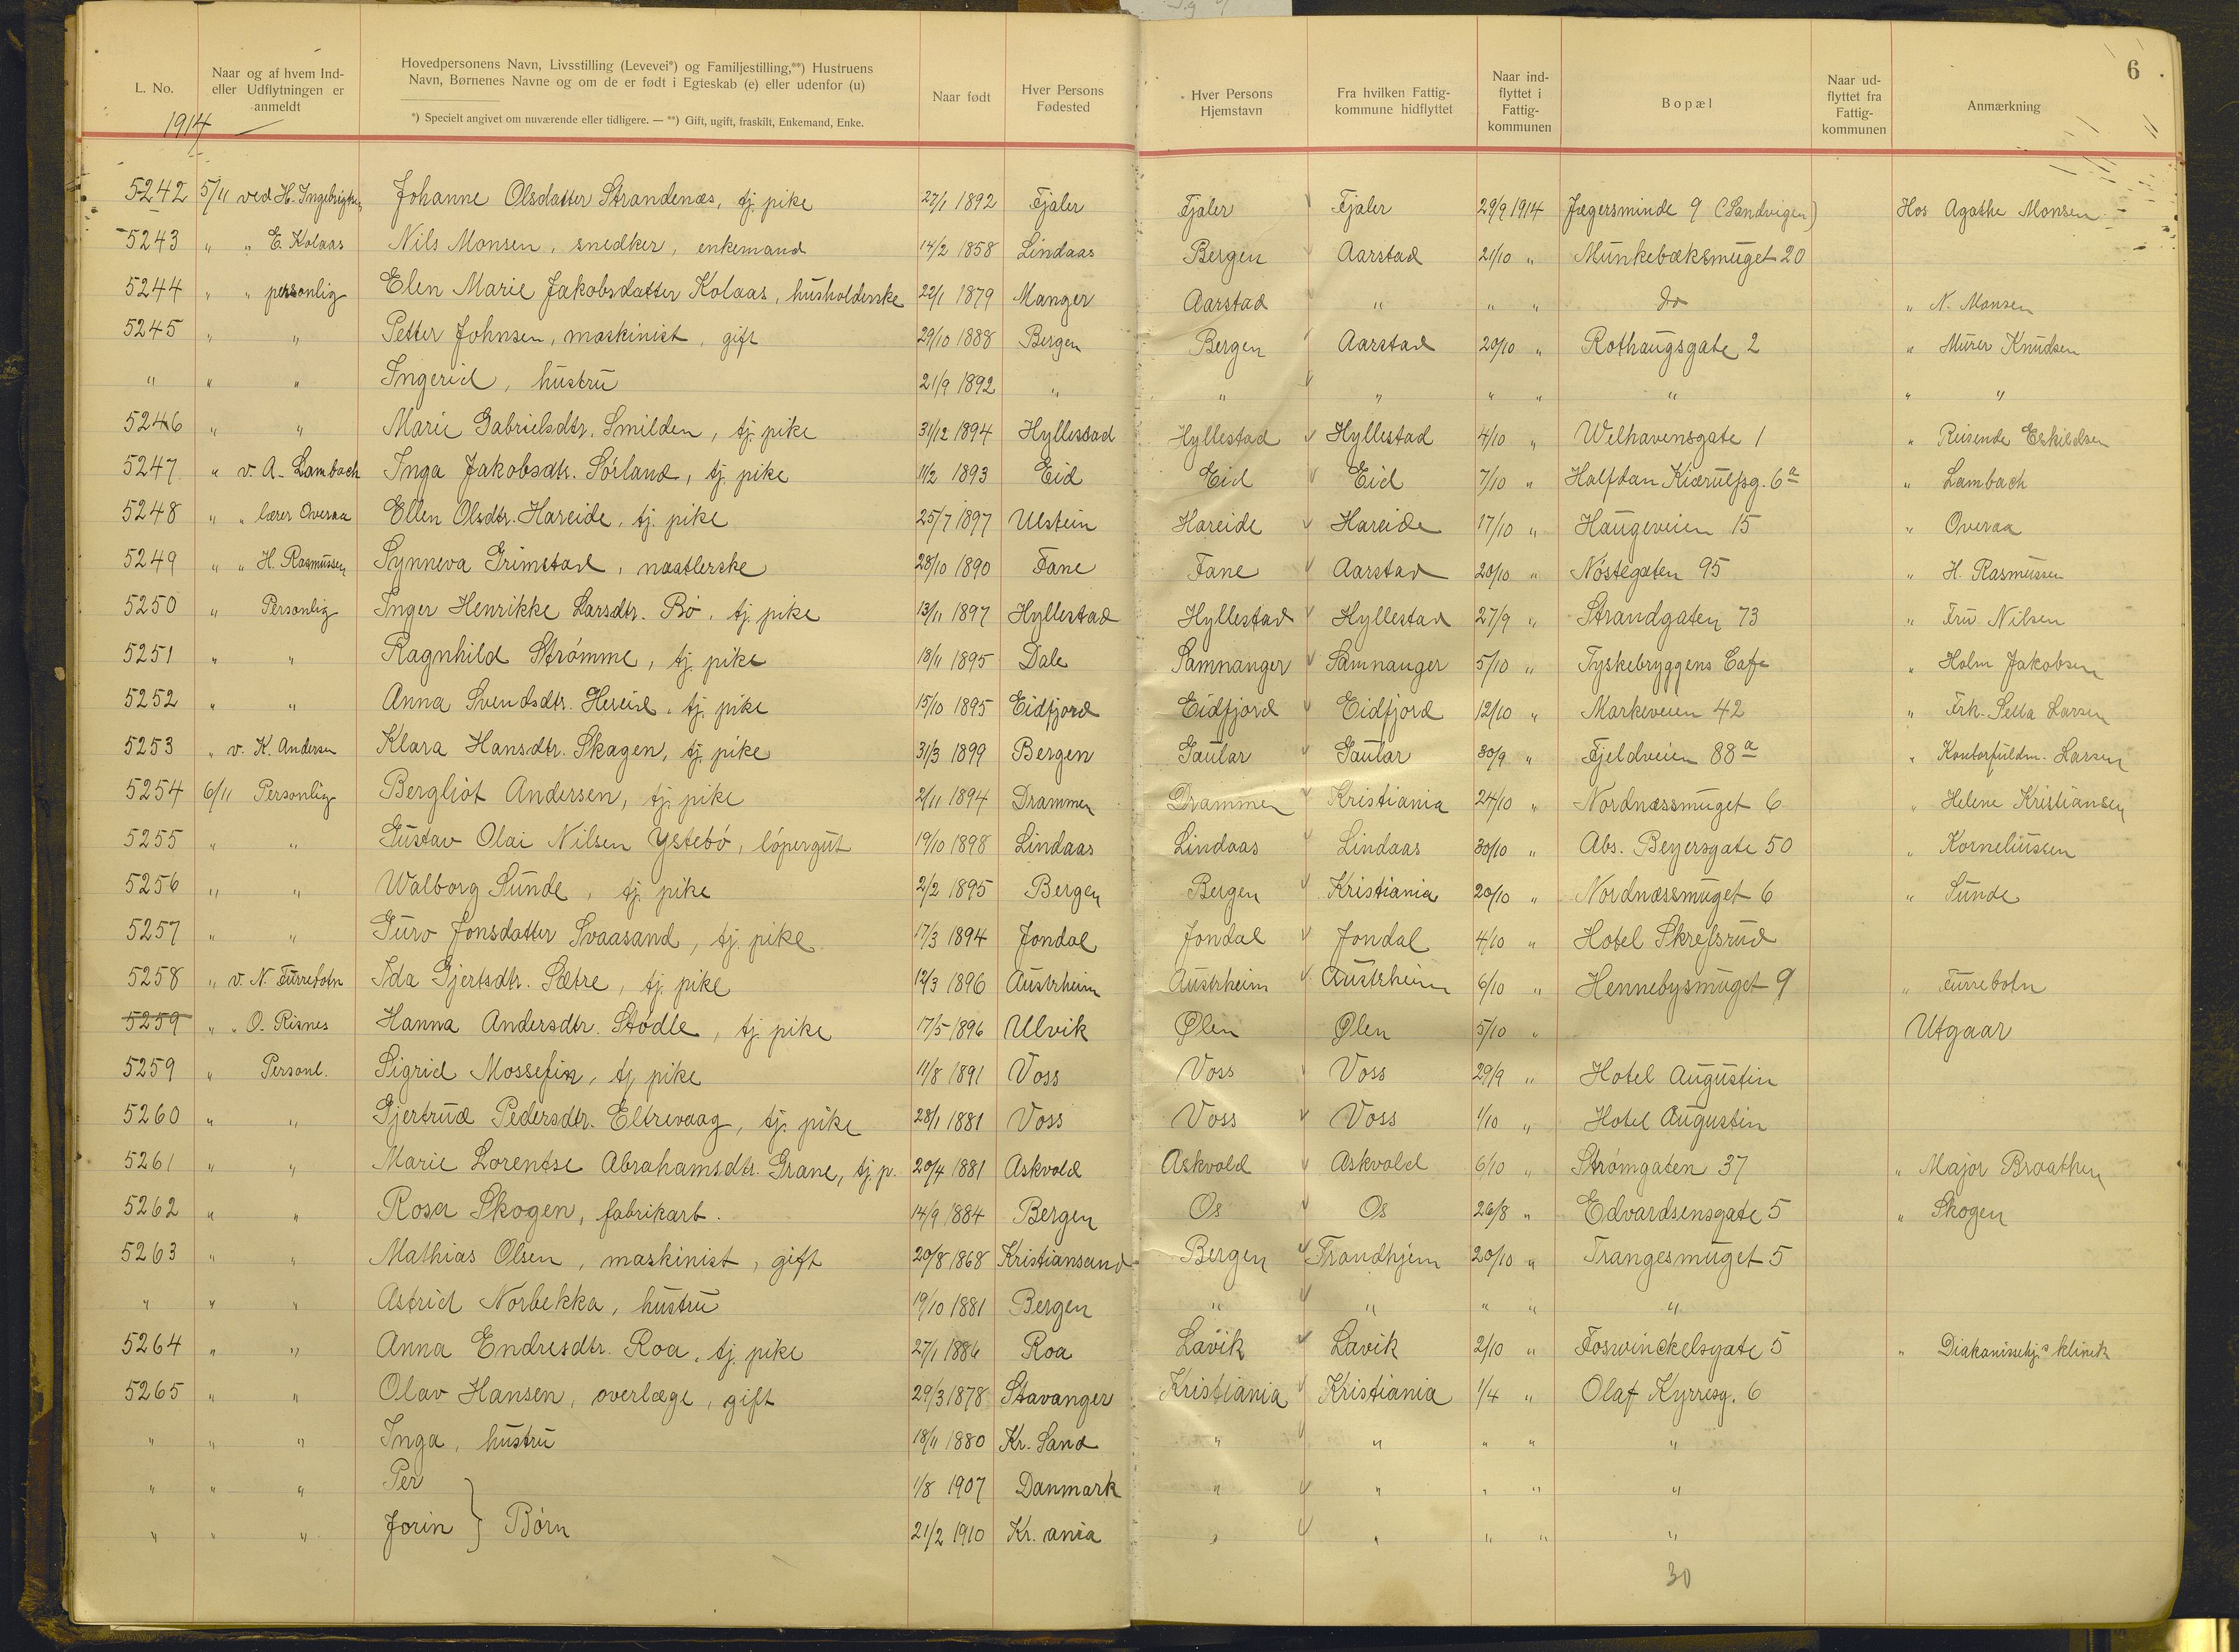 6
L. No.
Naar og af hvem Ind- eller Udflytningen er anmeldt
Hovedpersonens Navn, Livsstilling (Levevei*) og Familjestilling,**) Hustruens Navn, Børnenes Navne og om de er født i Egteskab (e) eller udenfor (u)
*) Specielt angivet om nuværende eller tidligere. — **) Gift, ugift, fraskilt, Enkemand, Enke.
Naar født
Hver Persons Fødested
Hver Persons Hjemstavn
Fra hvilken Fattig- kommune hidflyttet
Naar ind- flyttet i Fattig- kommunen
Bopæl
Naar ud- flyttet fra Fattig- kommunen
Anmærkning
1914
5242 5/11 ved H. Ingebrigtsen Johanne Olsdatter Strandenæs, tj. pike 27/1 1892 Fjaler Fjaler Fjaler 29/9 1914 Jægersminde 9 (Sandvigen) Hos Agathe Monsen
5243 " " E. Kolaas Nils Monsen, snedker, enkemand 14/2 1858 Lindaas Bergen Aarstad 21/10 " Munkebæksmuget 20
5244 " " personlig Elen Marie Jakobsdatter Kolaas, husholderske 22/1 1879 Manger Aarstad " " " do " N. Monsen
5245 " " Petter Johnsen, maskinist, gift 29/10 1888 Bergen Bergen Aarstad 20/10 " Rothaugsgate 2 " Murer Knudsen
" " " Ingerid, hustru 21/9 1892 " " " " " " " "
5246 " " Marie Gabrielsdtr. Smilden, tj. pike 31/12 1894 Hyllestad Hyllestad Hyllestad 4/10 " Welhavensgate 1 " Reisende Eskildsen
5247 " v. A. Lambach Inga Jakobsdtr. Sörland, tj. pike 11/2 1893 Eid Eid Eid 7/10 " Halfdan Kierulfsg. 6a " Lambach
5248 " " lærer Overaa Ellen Olsdtr. Hareide, tj. pike 25/7 1897 Ulstein Hareide Hareide 17/10 " Haugeveien 15 " Overaa
5249 " " H. Rasmussen Synneva Grimstad, naatlerske 28/10 1890 Fane Fane Aarstad 20/10 " Nöstegaten 95 " H. Rasmussen
5250 " Personlig Inger Henrikke Larsdtr. Bö, tj. pike 13/11 1897 Hyllestad Hyllestad Hyllestad 27/9 " Strandgaten 73 " Fru Nilsen
5251 " " Ragnhild Strömme, tj. pike 18/11 1895 Dale Samnanger Samnanger 5/10 " Tyskebryggens Cafe " Holm Jakobsen
5252 " " Anna Svendsdtr. Hereid, tj. pike 15/10 1895 Eidfjord Eidfjord Eidfjord 12/10 " Markeveien 42 " Frk. Larsen
5253 " v. K. Andersen Klara Hansdtr. Skagen, tj. pike 31/3 1899 Bergen Gaular Gaular 30/9 " Fjeldveien 88a " Kontorfuldm. Larsen
5254 6/11 Personlig Bergliot Andersen, tj. pike 2/11 1894 Drammen Drammen Kristiania 24/10 " Nordnæssmuget 6 " Helene Kristiansen
5255 " " Gustav Olai Nilsen Ystebö, löpergut 19/10 1898 Lindaas Lindaas Lindaas 30/10 " Abs. Beyersgate 50 " Korneliussen
5256 " " Walborg Sunde, tj. pike 2/2 1895 Bergen Bergen Kristiania 20/10 " Nordnæssmuget 6 " Sunde
5257 " " Guro Jonsdatter Svaasand, tj. pike 17/3 1894 Jondal Jondal Jondal 4/10 " Hotel Skrefsrud
5258 " v. N. Furrebotn Ida Gjertsdtr. Sætre, tj. pike 12/3 1896 Austrheim Austrheim Austrheim 6/10 " Hennebysmuget 9 " Furrebotn
5259 " " O. Risnes Hanna Andersdtr. Stödle, tj. pike 17/5 1896 Ulvik Ølen Ølen 5/10 " Utgaar
5259 " Personl. Sigrid Mossefin, tj. pike 11/8 1891 Voss Voss Voss 29/9 " Hotel Augustin
5260 " " Gjertrud Pedersdtr. Eltrevaag, tj. pike 28/1 1881 Voss Voss Voss 1/10 " Hotel Augustin
5261 " " Marie Lorentse Abrahamsdtr. Grane, tj. p. 20/4 1881 Askvold Askvold Askvold 6/10 " Strömgaten 37 " Major Braathen
5262 " " Rosa Skogen, fabrikarb. 14/9 1884 Bergen Os Os 26/8 " Edvardsensgate 5 " Skogen
5263 " " Mathias Olsen, maskinist, gift 20/8 1868 Kristiansand Bergen Trondhjem 20/10 " Trangesmuget 5
" " " Astrid Norbekka, hustru 19/10 1881 Bergen " " " " "
5264 " " Anna Endresdtr. Roa, tj. pike 27/1 1886 Roa Lavik Lavik 2/10 " Foswinckelsgate 5 " Diakonissehj.s klinik
5265 " " Olav Hansen, overlæge, gift 29/3 1878 Stavanger Kristiania Kristiania 1/4 " Olaf Kyrresg. 6
" " " Inga, hustru 18/11 1880 Kr. Sand " " " " "
" " " Per } Börn 1/8 1907 Danmark " " " " "
" " " Jorin 21/2 1910 Kr. ania " " " " "
30